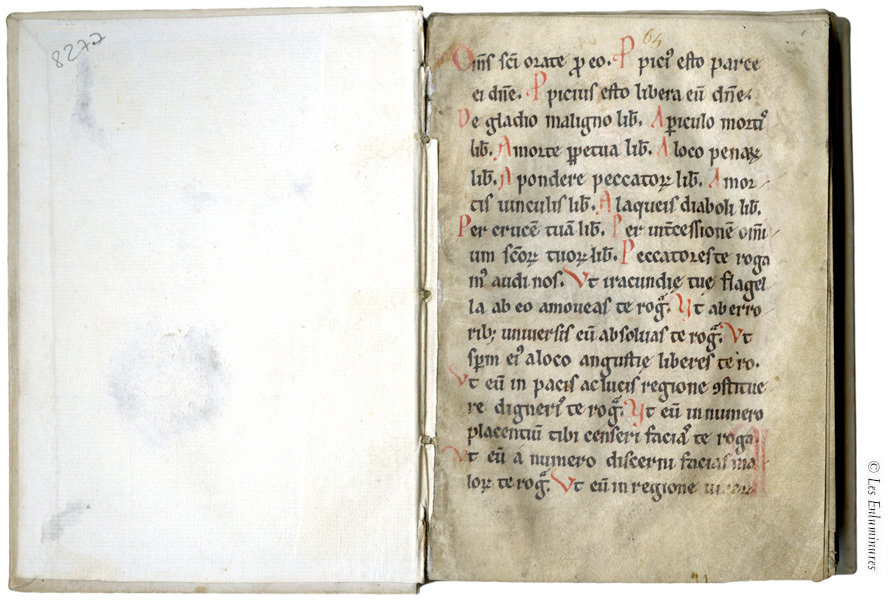 8277
64
Om̄s sc̄i orate p̱ eo. P pici᷒ esto parce
ei dn̄e. P picius esto libera eū dn̄e.
De gladio maligno lib̄. A ꝑiculo morti᷒
lib̄. A morte ꝑpetua lib̄. A loco penaꝝ
lib̄. A pondere peccatoꝝ lib̄. A mor
tis uinculis lib̄. A laqueis diaboli lib̄.
Per crucē tuā lib̄. Per int̄cessionē om̄i
um sc̄oꝝ tuoꝝ lib̄. Peccatores te roga
m᷒ audi nos. Vt iracundię tuę flagel
la ab eo amoueas te roḡ. Vt ab erro
rib; uniuersis eū absoluas te roḡ. Vt
sp̄m ei᷒ a loco angustię liberes te ro.
Vt eū in pacis ac lucis regione ꝯstitue
re digneri᷒ te roḡ. Vt eū in numero
placentiū tibi censeri facia᷒ te roga.
Vt eū a numero discerni facias ma
loꝝ te roḡ. Vt eū in regione
© Les Enluminures